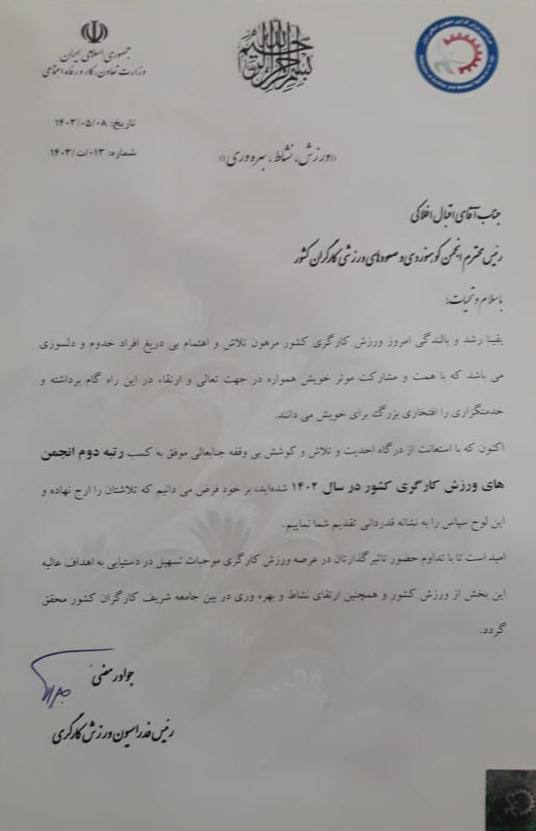 جمهوری اسلامی ایران
وزارت تعاون، کار و رفاه اجتماعی
تاریخ: ۱۴۰۳/۰۵/۰۸
شماره: ۰۱۳/ت/۱۴۰۳
بسم الله الرحمن الرحیم
«ورزش، نشاط، بهره وری»
جناب آقای اقبال افلاکی
رئیس محترم انجمن کوهنوردی و صعودهای ورزشی کارگران کشور
با سلام و تحیات؛
یقینا رشد و بالندگی امروز ورزش کارگری کشور مرهون تلاش و اهتمام بی دریغ افراد خدوم و دلسوزی
می باشد که با همت و مشارکت موثر خویش همواره در جهت تعالی و ارتقاء در این راه گام برداشته و
خدمتگزاری را افتخاری بزرگ برای خویش می دانند.
اکنون که با استعانت از درگاه احدیت و تلاش و کوشش بی وقفه جنابعالی موفق به کسب رتبه دوم انجمن
های ورزش کارگری کشور در سال ۱۴۰۲ شده‌اید، بر خود فرض می دانیم که تلاشتان را ارج نهاده و
این لوح سپاس را به نشانه قدردانی تقدیم شما نماییم.
امید است تا با تداوم حضور تاثیرگذارتان در عرصه ورزش کارگری موجبات تسهیل در دستیابی به اهداف عالیه
این بخش از ورزش کشور و همچنین ارتقای نشاط و بهره وری در بین جامعه شریف کارگران کشور محقق
گردد.
جواد رمضی
رئیس فدراسیون ورزش کارگری